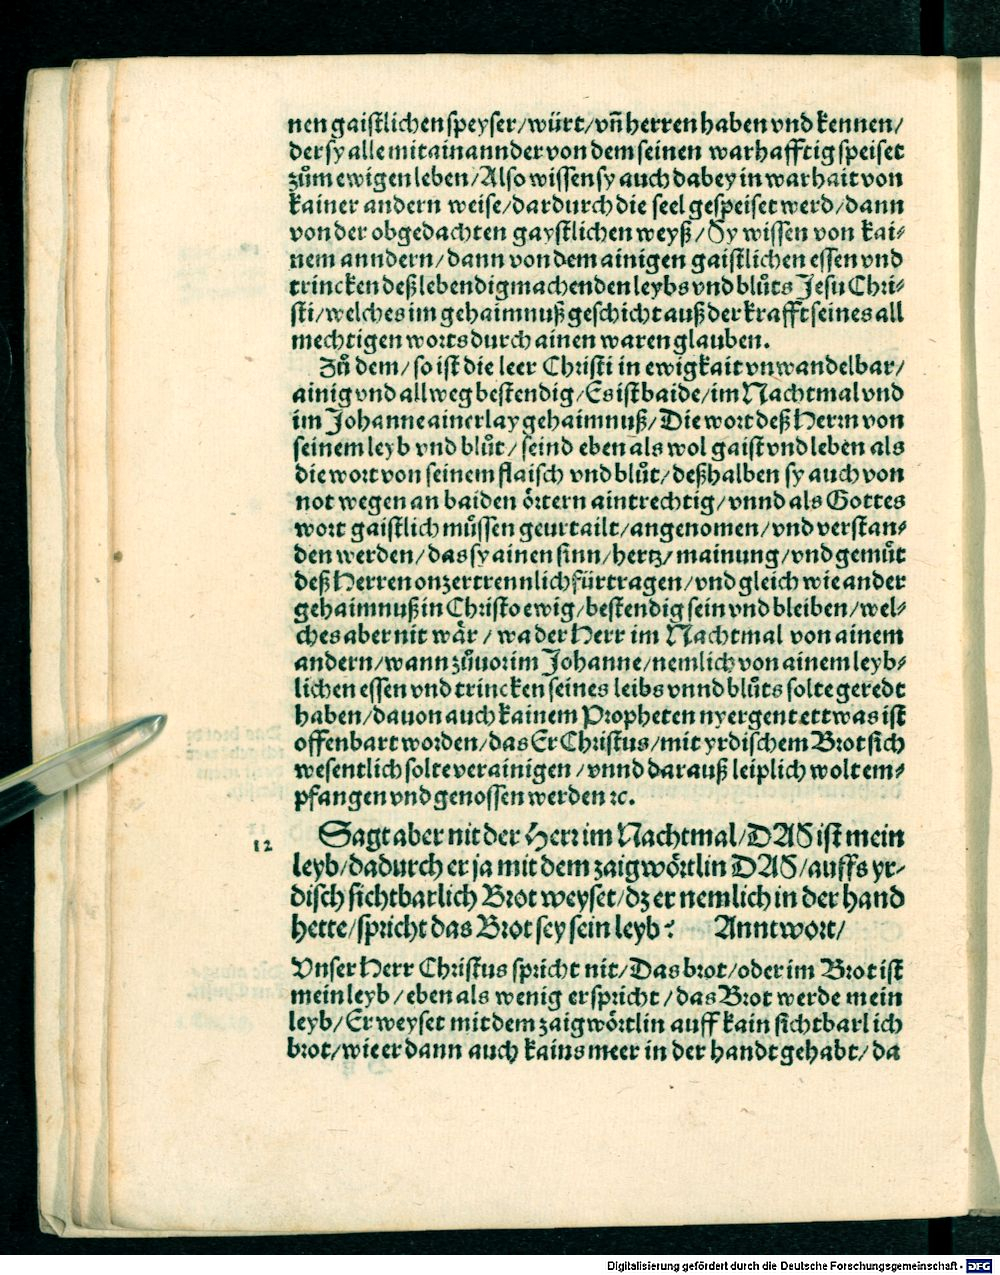 nen gaistlichen speyser/würt/vn̄ herren haben vnd kennen/
der sy alle mitainannder von dem seinen warhafftig speiset
zům ewigen leben/Also wissen sy auch dabey in warhait von
kainer andern weise/dardurch die seel gespeiset werd/dann
von der obgedachten gaystlichen weyß/Sy wissen von kai⸗
nem anndern/dann von dem ainigen gaistlichen essen vnd
trincken deß lebendigmachenden leybs vnd blůts Jesu Chri⸗
sti/welches im gehaimnuß geschicht auß der krafft seines all
mechtigen worts durch ainen waren glauben.
Zů dem/so ist die leer Christi in ewigkait vnwandelbar/
ainig vnd allweg bestendig/Es ist baide/im Nachtmal vnd
im Johanne ainerlay gehaimnuß/Die wort deß Herrn von
seinem leyb vnd blůt/seind eben als wol gaist vnd leben als
die wort von seinem flaisch vnd blůt/deßhalben sy auch von
not wegen an baiden örtern aintrechtig/vnnd als Gottes
wort gaistlich můssen geurtailt/angenomen/vnd verstan⸗
den werden/das sy ainen sinn/hertz/mainung/vnd gemůt
deß Herren onzertrennlich fürtragen/vnd gleich wie ander
gehaimnuß in Christo ewig/bestendig sein vnd bleiben/wel⸗
ches aber nit wår/wa der Herr im Nachtmal von ainem
andern/wann zůuor im Johanne/nemlich von ainem leyb⸗
lichen essen vnd trincken seines leibs vnnd blůts solte geredt
haben/dauon auch kainem Propheten nyergent ettwas ist
offenbart worden/das Er Christus/mit yrdischem Brot sich
wesentlich solte verainigen/vnnd darauß leiplich wolt em⸗
pfangen vnd genossen werden ꝛc.
12 Sagt aber nit der Herr im Nachtmal/DAS ist mein
leyb/dadurch er ja mit dem zaigwörtlin DAS/auffs yr⸗
disch sichtbarlich Brot weyset/dz er nemlich in der hand
hette/spricht das Brot sey sein leyb? Anntwort/
Vnser Herr Christus spricht nit/Das brot/oder im Brot ist
mein leyb/eben als wenig er spricht/das Brot werde mein
leyb/Er weyset mit dem zaigwörtlin auff kain sichtbarlich
brot/wie er dann auch kains meer in der handt gehabt/da
Digitalisierung gefördert durch die Deutsche Forschungsgemeinschaft - DFG